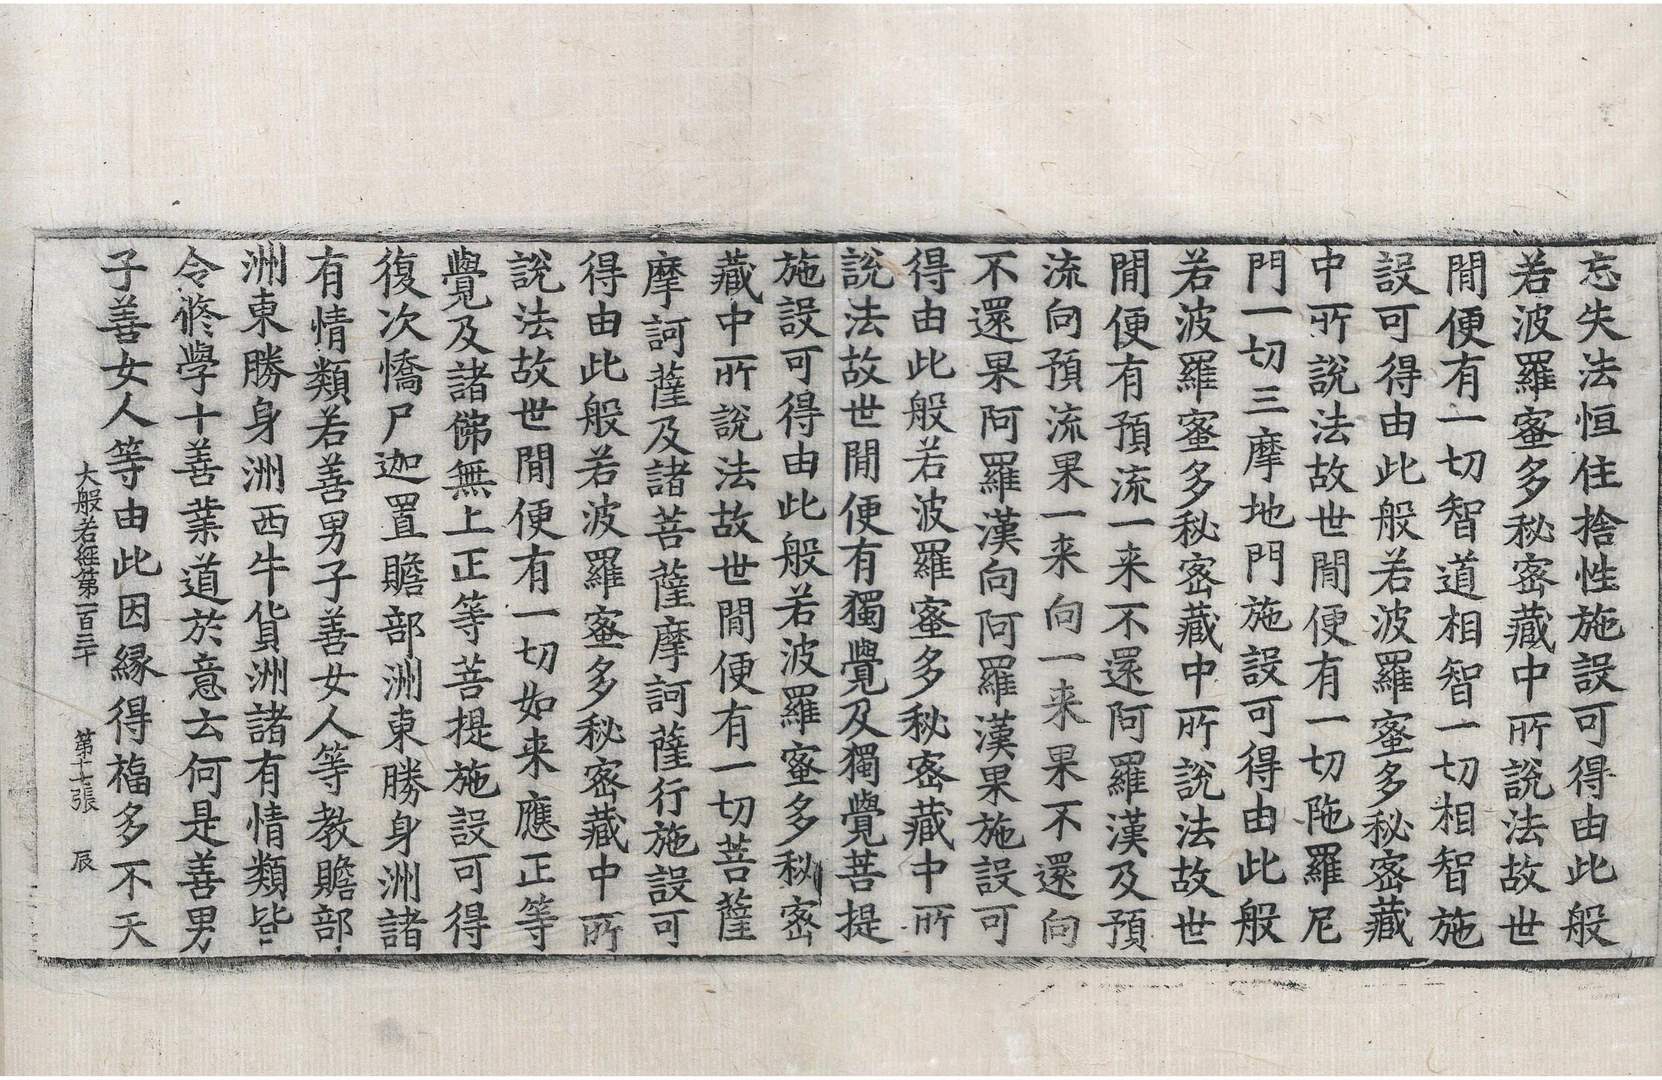 忘失法恒住捨性施設可得由此般
若波羅蜜多秘密藏中所說法故世
間便有一切智道相智一切相智施
設可得由此般若波羅蜜多秘密藏
中所說法故世間便有一切陁羅尼
門一切三摩地門施設可得由此般
若波羅蜜多秘密藏中所說法故世
間便有預流一来不還阿羅漢及預
流向預流果一来向一来果不還向
不還果阿羅漢向阿羅漢果施設可
得由此般若波羅蜜多秘密藏中所
說法故世間便有獨覺及獨覺菩提
施設可得由此般若波羅蜜多秘密
藏中所說法故世間便有一切菩薩
摩訶薩及諸菩薩摩訶薩行施設可
得由此般若波羅蜜多秘密藏中所
說法故世間便有一切如来應正等
覺及諸佛無上正等菩提施設可得
復次憍尸迦置贍部洲東勝身洲諸
有情類若善男子善女人等教贍部
洲東勝身洲西牛貨洲諸有情類皆
令修學十善業道於意云何是善男
子善女人等由此因縁得福多不天
大般若經第一百三十 第十七張 辰